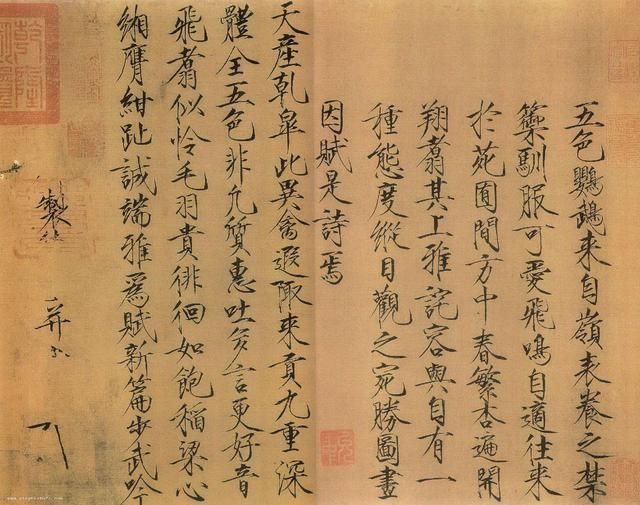 五色鸚鵡来自嶺表養之禁
籞馴服可愛飛鳴自適往来
於苑囿間方中春繁杏遍開
翔翥其上雅詫容與自有一
種態度縱目觀之宛勝圖畫
因賦是詩焉
天產乾皋此異禽遐陬来貢九重深
體全五色非凡質惠吐多言更好音
飛翥似怜毛羽貴徘徊如飽稻粱心
緗膺紺趾誠端雅為賦新篇步武吟
製